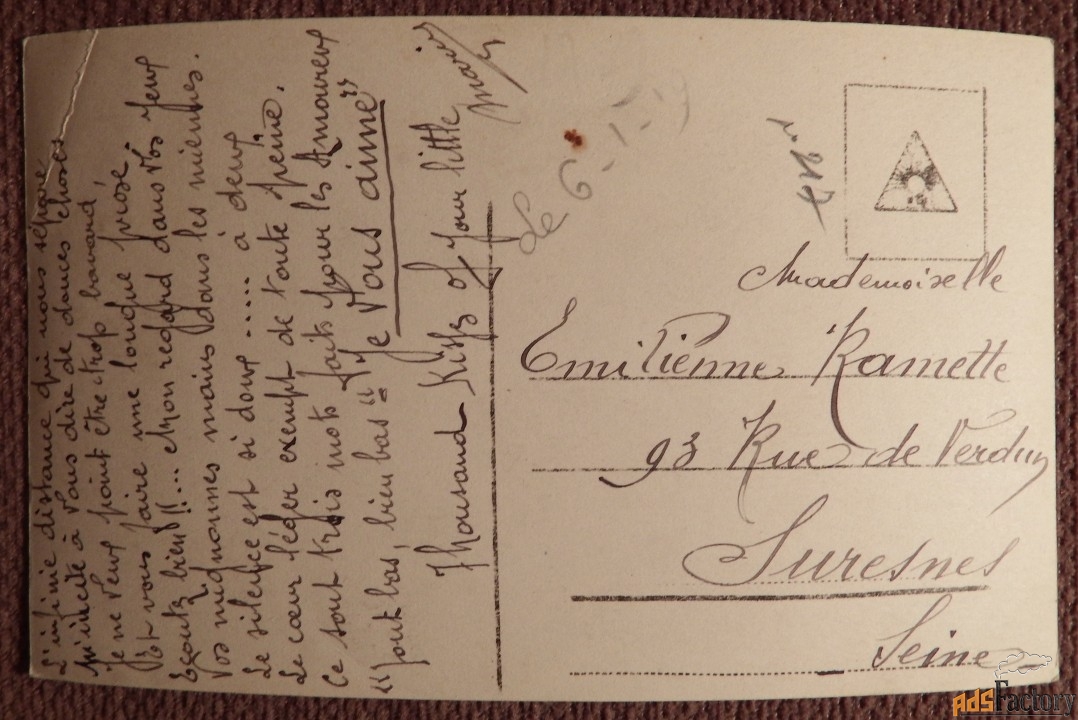 L'infinie distance qui nous sépare
M'incite à vous dire de douces choses
Je ne veux point être trop bavard,
Et vous faire une longue prose.
Ecoutez bien!!... Mon regard dans vos yeux
Vos mignonnes mains dans les miennes.
Le silence est si doux ..... à deux
Le cœur léger exempt de toute peine.
Ce sont trois mots faits pour les Amoureux
"Tout bas, bien bas" "Je Vous aime"
Thousand Kisses of your little
de 6-1-
Mademoiselle
Emilienne Ramette
93 Rue de Verdun
Suresnes
Seine
AdsFactory